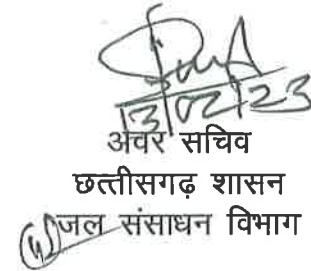 13/02/23
अवर सचिव
छत्तीसगढ़ शासन
जल संसाधन विभाग